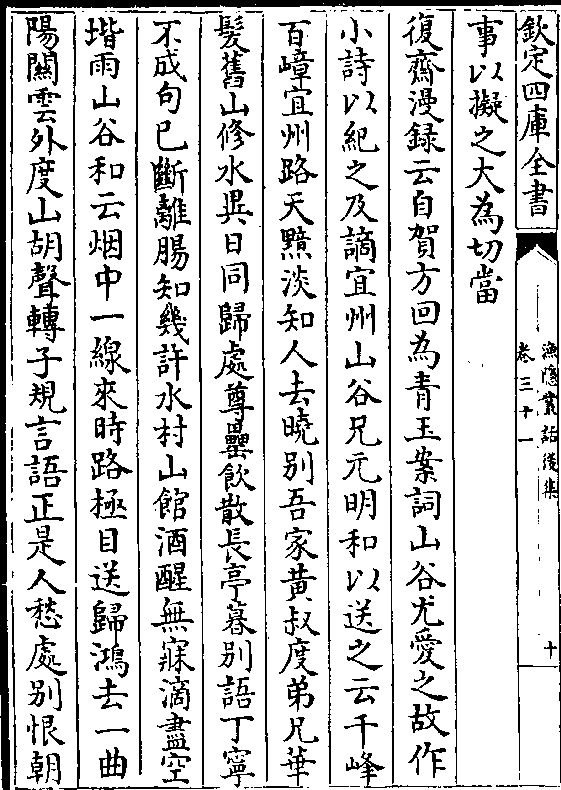 欽定四庫全書
漁隱叢話後集
卷三十一
十
事以擬之大為切當
復齋漫録云自賀方回為青玉案詞山谷尤愛之故作
小詩以紀之及謫宜州山谷兄元明和以送之云千峰
百嶂宜州路天黯淡知人去曉别吾家黄叔度弟兄華
髮舊山修水異日同歸處尊罍飲散長亭暮别語丁寧
不成句已斷離腸知幾許水村山館酒醒無寐滴盡空
堦雨山谷和云烟中一線來時路極目送歸鴻去一曲
陽闗雲外度山胡聲轉子規言語正是人愁處别恨朝